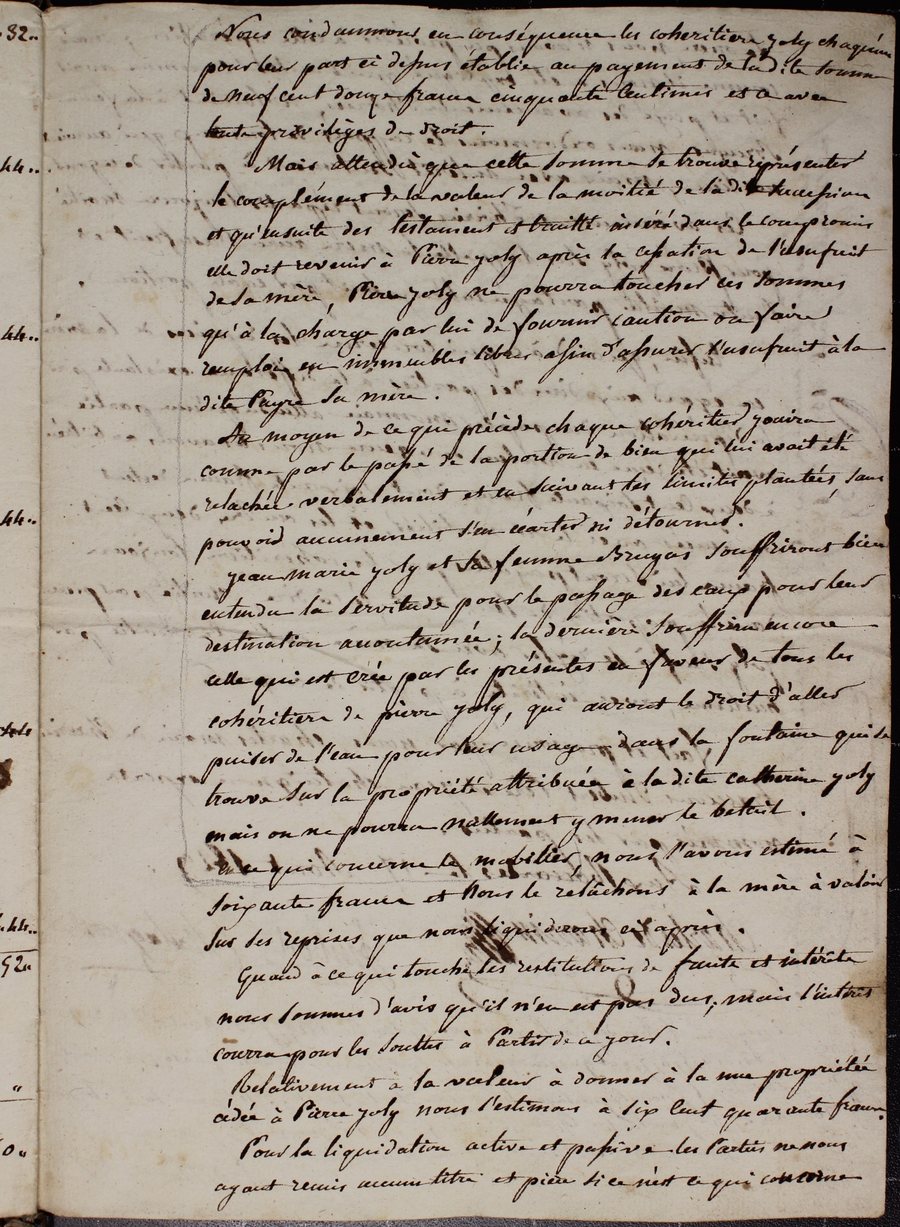 32"
Nous condamnons en conséquence les coheritiers Joly chaqu'un
pour leur part ci dessus établie au payement de la dite somme
de neuf cent douze francs cinquante centimes et ce avec
privilèges de droit.
44"
Mais attendu que cette somme se trouve représenter
le complément de la valeur de la moitié de la dite succession
et qu'ensuite des testament et traité inséré dans le compromis
elle doit revenir à Pierre Joly après la cessation de l'usufruit
de sa mère, Pierre Joly ne pourra toucher ces sommes
44"
qu'à la charge par lui de fournir caution ou faire
remploi en immeubles libres afin d'assurer l'usufruit à la
dite Payre sa mère.
Au moyen de ce qui précède chaque cohéritier jouira
comme par le passé de la portion de bien qui lui avait été
relachée verbalement et en suivant les limites plantées, sans
44"
pouvoir aucunement s'en écarter ni détourner.
Jean marie Joly et sa femme Bruyas souffriront bien
entendu la servitude pour le passage des eaux pour leur
destination accoutumée; la dernière souffrira encore
celle qui est créée par les présentes en faveur de tous les
cohéritiers de pierre Joly, qui auront le droit d'aller
puiser de l'eau pour leur usage dans la fontaine qui se
trouve sur la propriété attribuée à la dite catherine Joly
mais on ne pourra nullement y mener le betail.
en ce qui concerne le mobilier, nous l'avons estimé à
soixante francs et nous le relâchons à la mère à valoir
44"
sur ses reprises que nous liquiderons ci après.
92"
Quand à ce qui touche les restitutions de fruits et intérêts
nous sommes d'avis qu'il n'en est pas dus, mais l'intérêt
courra pour les soultes à Partir de ce jour.
"
Relativement à la valeur à donner à la nue propriétée
cédée à Pierre Joly nous l'estimons à six cent quarante francs.
0"
Pour la liquidation active et passive les Parties ne nous
ayant remis aucun titre et pièce si ce n'est ce qui concerne